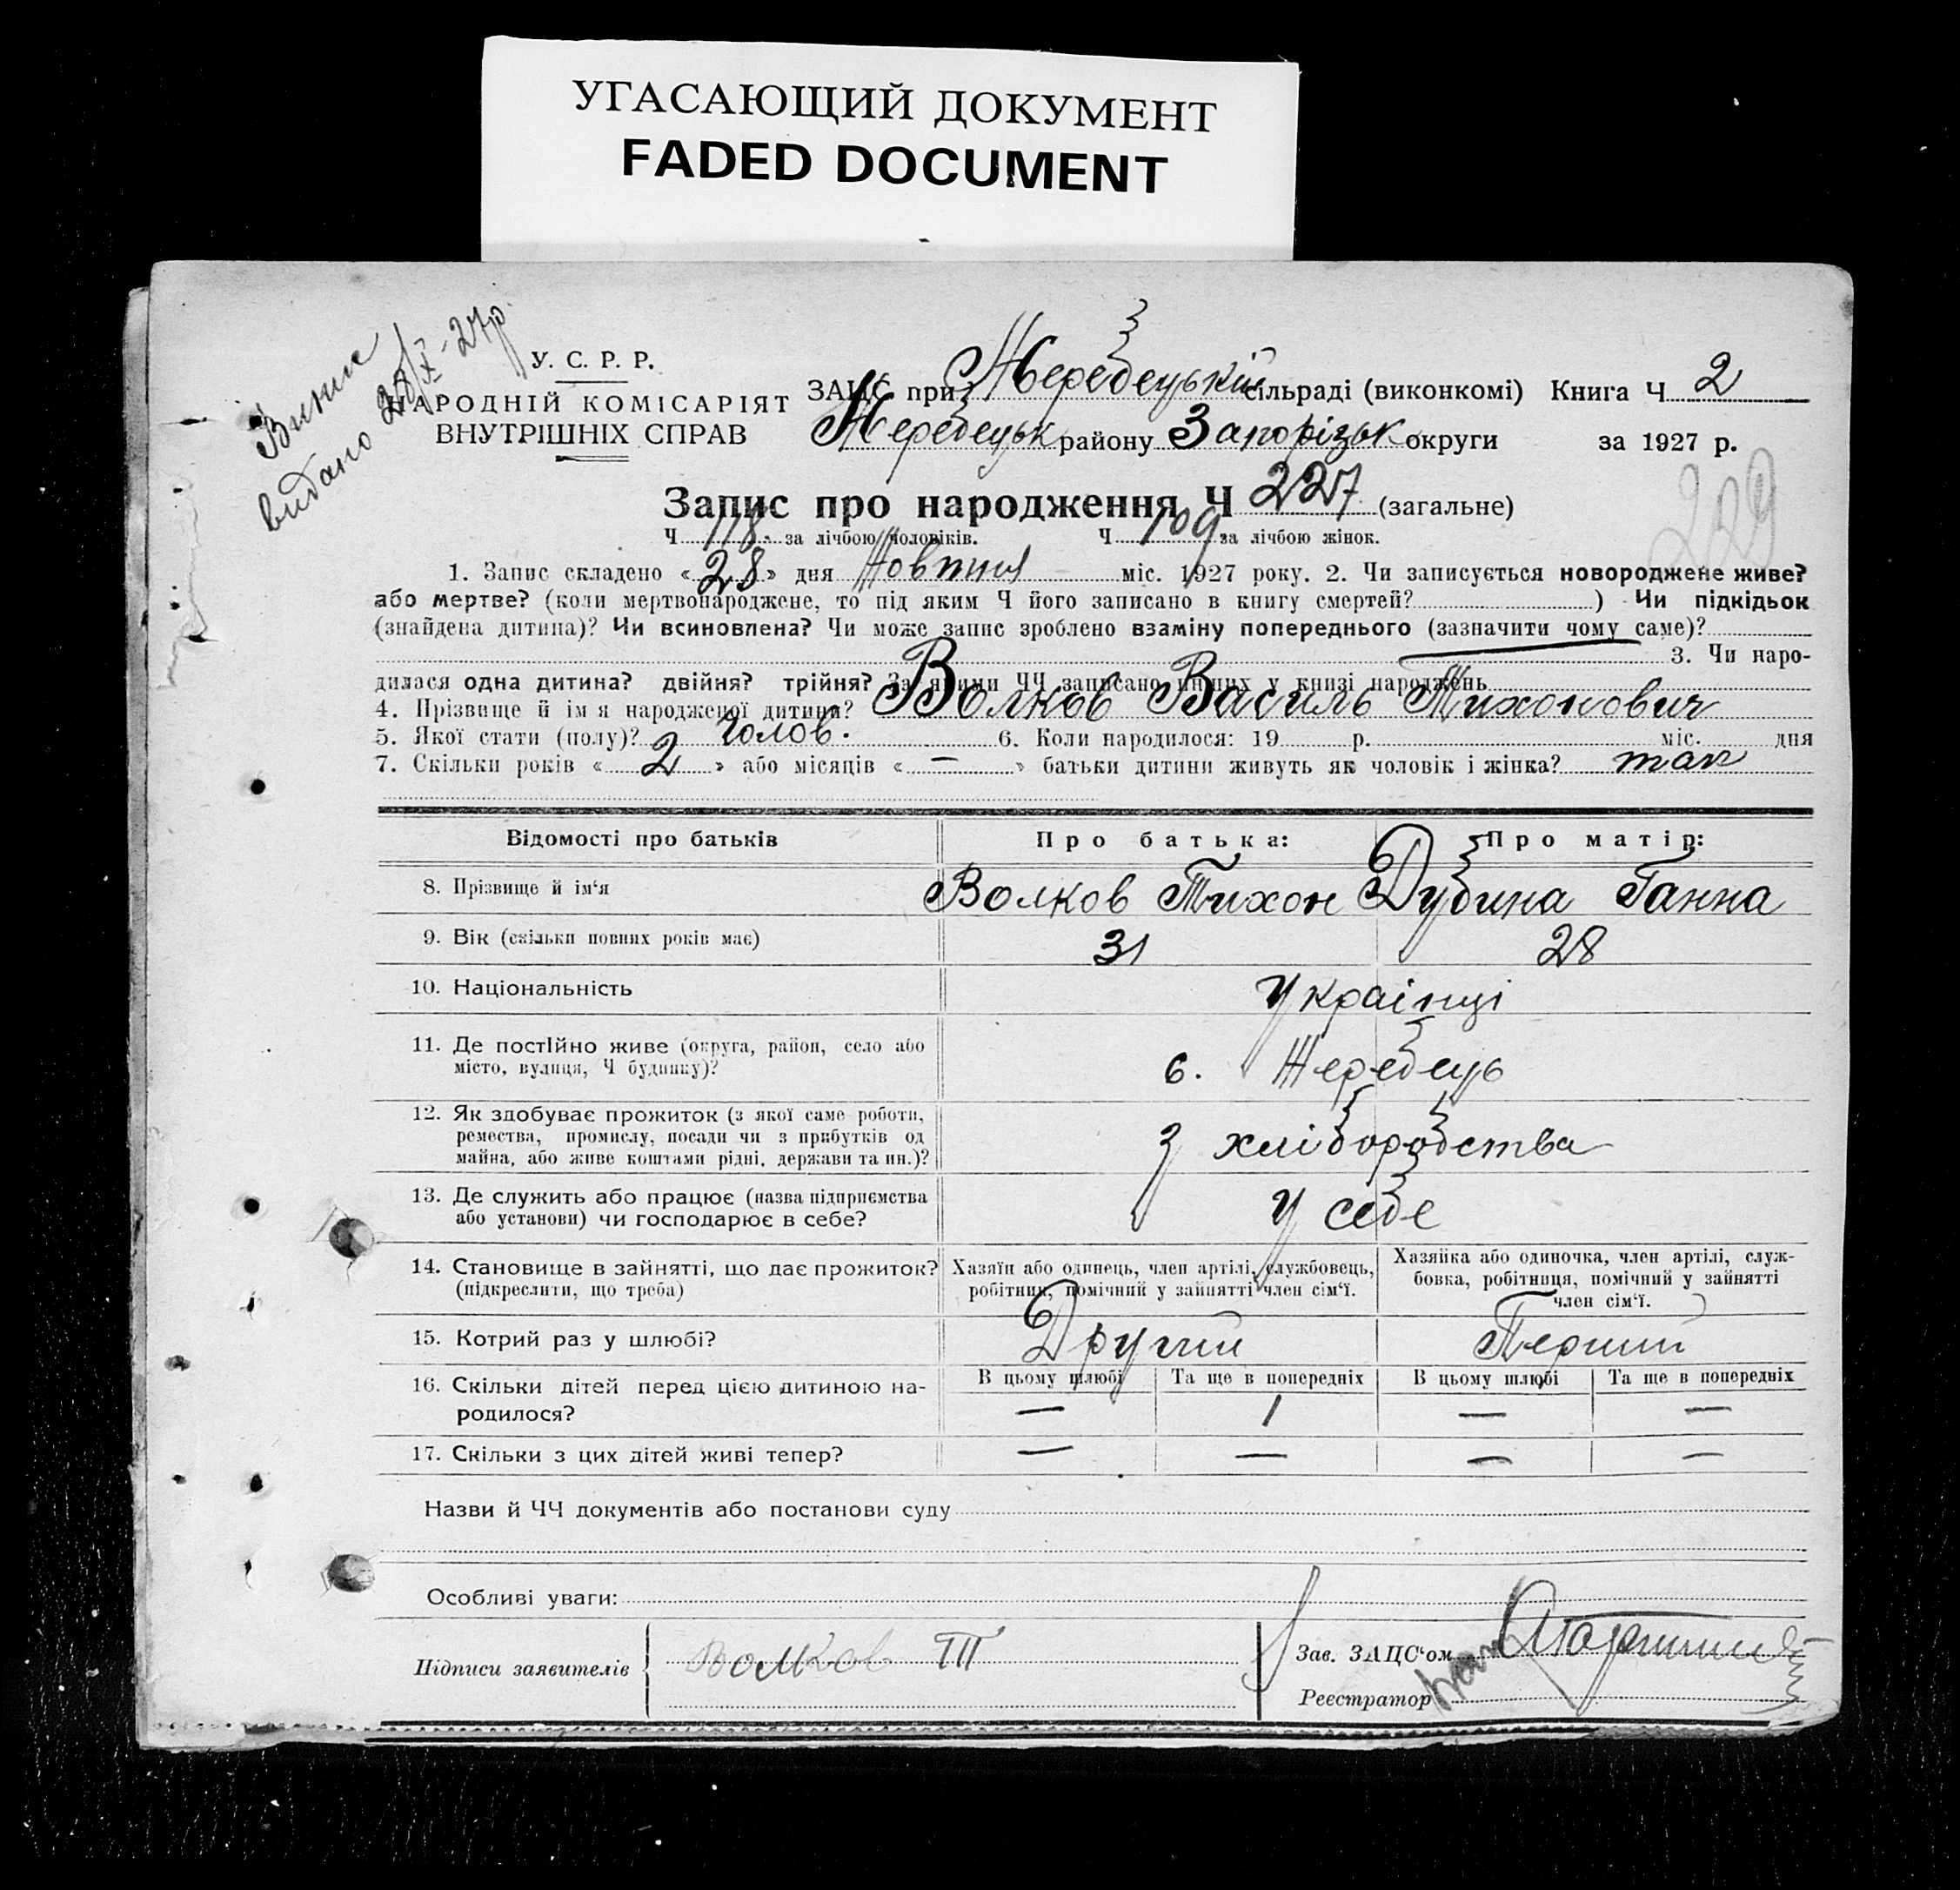 УГАСАЮЩИЙ ДОКУМЕНТ
FADED DOCUMENT
Випис
видано 28/X-27р.
У. С. Р. Р.
НАРОДНІЙ КОМІСАРІЯТ
ВНУТРІШНІХ СПРАВ
ЗАЦС при Жеребецькій сільраді (виконкомі) Книга Ч 2
Жеребецьк району Запорізьк округи за 1927 р.
Запис про народження Ч 227 (загальне)
229
Ч 118 за лічбою чоловіків. Ч 109 за лічбою жінок.
1. Запис складено «28» дня Жовтня міс. 1927 року. 2. Чи записується новороджене живе?
або мертве? (коли мертвонароджене, то під яким Ч його записано в книгу смертей? ) Чи підкідьок
(знайдена дитина)? Чи всиновлена? Чи може запис зроблено взаміну попереднього (зазначити чому саме)?
— 3. Чи наро-
дилася одна дитина? двійня? трійня? За якими ЧЧ записано инших у книзі народжень
4. Прізвище й ім я народженої дитини? Волков Василь Тихонович
5. Якої стати (полу)? Чолов. 6. Коли народилося: 19 р. міс. дня
7. Скільки років «2» або місяців «—» батьки дитини живуть як чоловік і жінка? так
Відомості про батьків Про батька: Про матір:
8. Прізвище й ім‘я Волков Тихон Дубина Ганна
9. Вік (скільки повних років має) 31 28
10. Національність Українці
11. Де постійно живе (округа, район, село або
місто, вулиця, Ч будинку)? с. Жеребець
12. Як здобуває прожиток (з якої саме роботи,
ремества, промислу, посади чи з прибутків од
майна, або живе коштами рідні, держави та ин.)? З хліборобства
13. Де служить або працює (назва підприємства
або установи) чи господарює в себе? У себе
14. Становище в зайнятті, що дає прожиток?
(підкреслити, що треба)
Хазяїн або одинець, член артілі, службовець,
робітник, помічний у зайнятті член сім‘ї.
Хазяйка або одиночка, член артілі, служ-
бовка, робітниця, помічний у зайнятті
член сім‘ї.
15. Котрий раз у шлюбі? Другий Перший
В цьому шлюбі Та ще в попередніх В цьому шлюбі Та ще в попередніх
16. Скільки дітей перед цією дитиною на-
родилося? — 1 — —
17. Скільки з цих дітей живі тепер? — — — —
Назви й ЧЧ документів або постанови суду
Особливі уваги:
Підписи заявителів Волков Т
Зав. ЗАЦС‘ом
Реєстратор